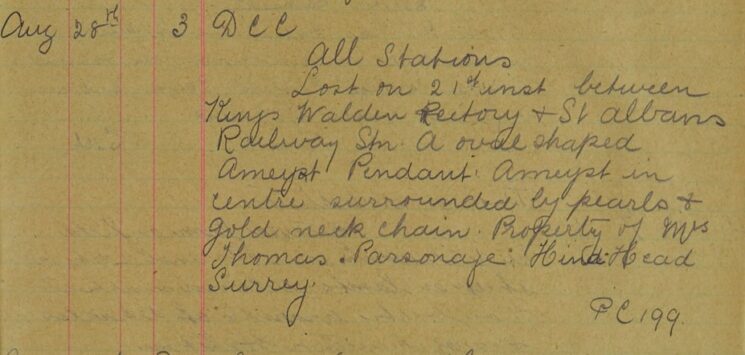 Aug 28th 3 D C C
All Stations
Lost on 21st inst between
Kings Walden Rectory & St Albans
Railway Stn. A oval shaped
Ameyst Pendant. Ameyst in
centre surrounded by pearls &
Gold neck chain. Property of Mrs
Thomas. Parsonage. Hind Head
Surrey.
PC 199.